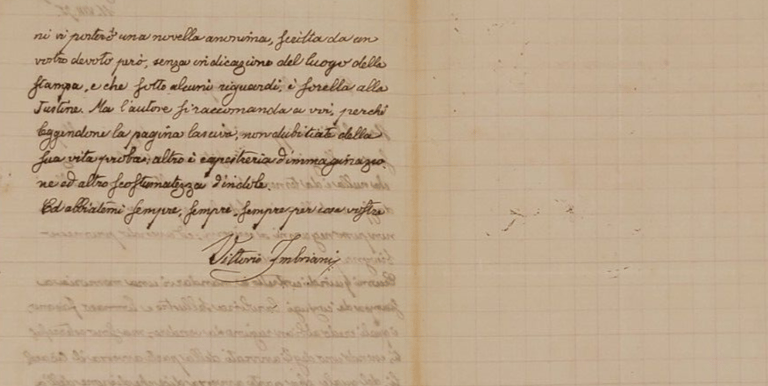 ni vi porterò una novella anonima, scritta da un
vostro devoto però, senza indicazione del luogo della
stampa, e che sotto alcuni riguardi, è sorella alla
Justine. Ma l'autore si raccomanda a voi, perché
leggendone la pagina lasciva, non dubitiate della
sua vita proba; altro è capestreria d'immaginazio-
ne ed altro scostumatezza d'indole.
Ed abbiatemi sempre, sempre, sempre per cosa vostra
Vittorio Imbriani